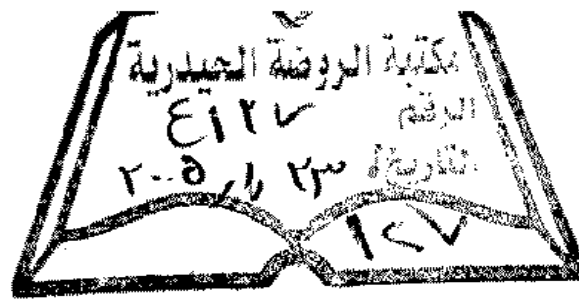 مكتبة الروضة الحيدرية
الرقم ٤١٢٧
التاريخ ٢٣/١/٢٠٠٥
١٢٧